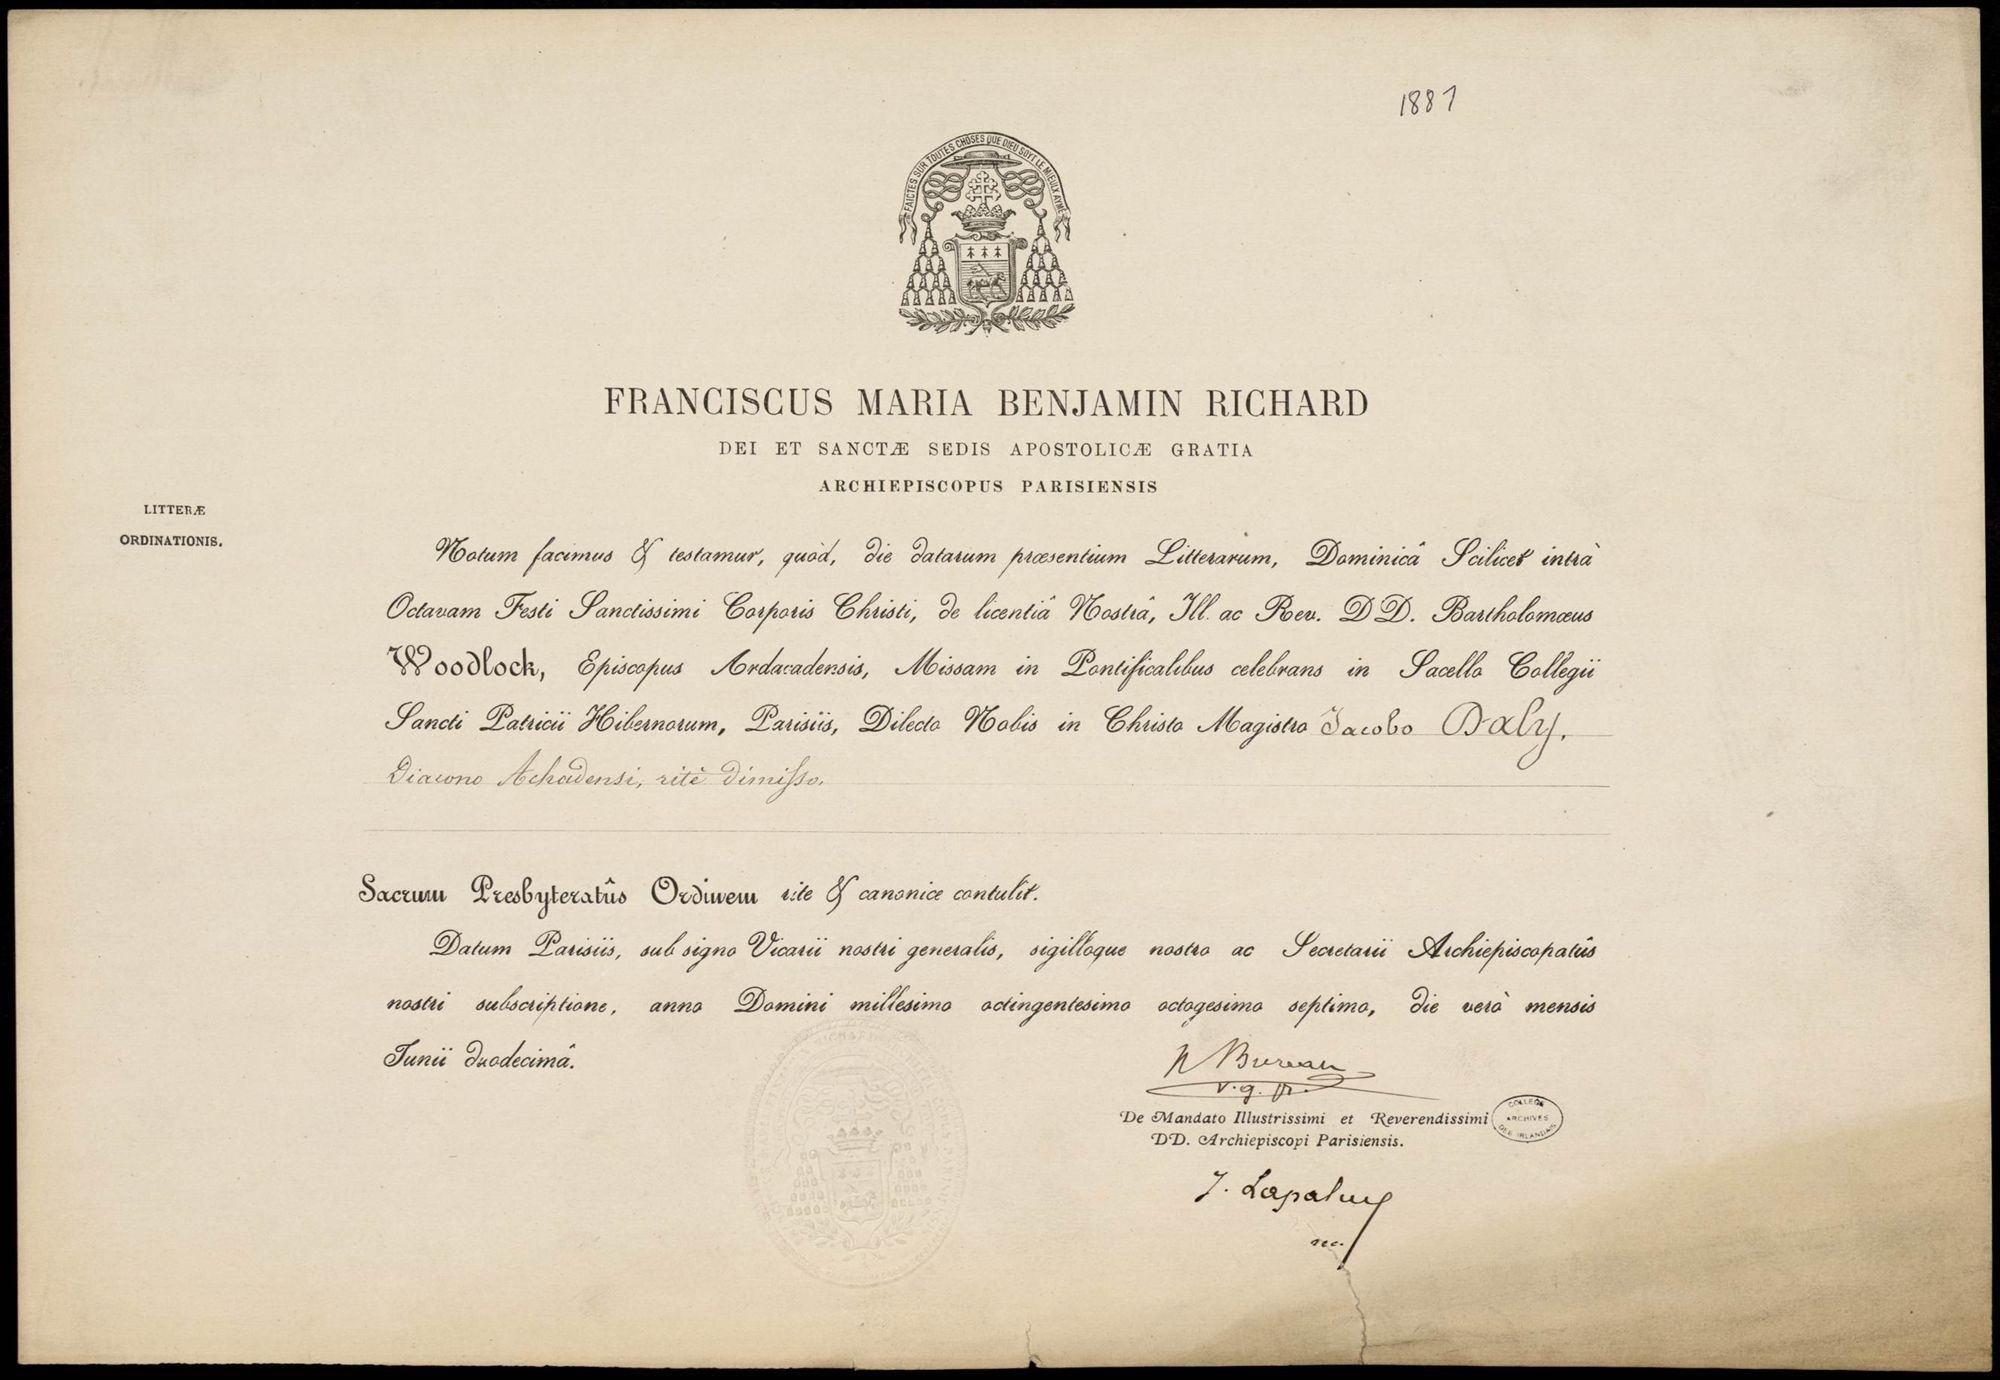 1887
FAICTES SUR TOUTES CHOSES QUE DIEU SOYT LE MIEULX AYMÉ
FRANCISCUS MARIA BENJAMIN RICHARD
DEI ET SANCTÆ SEDIS APOSTOLICÆ GRATIA
ARCHIEPISCOPUS PARISIENSIS
LITTERÆ
ORDINATIONIS.
Notum facimus & testamur, quòd, die datarum præsentium Litterarum, Dominicâ Scilicet intrà
Octavam Festi Sanctissimi Corporis Christi, de licentiâ Nostrâ, Ill. ac Rev. DD. Bartholomœus
Woodlock, Episcopus Ardacadensis, Missam in Pontificalibus celebrans in Sacello Collegii
Sancti Patricii Hibernorum, Parisiis, Dilecto Nobis in Christo Magistro Jacobo Daly,
Diacono Achadensi, ritè dimisso,
Sacrum Presbyteratûs Ordinem rite & canonice contulit.
Datum Parisiis, sub signo Vicarii nostri generalis, sigilloque nostro ac Secretarii Archiepiscopatûs
nostri subscriptione, anno Domini millesimo octingentesimo octogesimo septimo, die verò mensis
Junii duodecimâ.
Bureau
v. g.
De Mandato Illustrissimi et Reverendissimi
DD. Archiepiscopi Parisiensis.
COLLEGE
ARCHIVES
DES IRLANDAIS
J. Lapalme